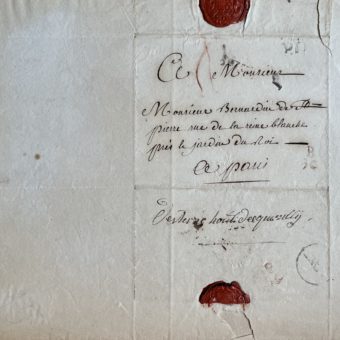 A Monsieur
Monsieur Bernardin de St
pierre rue de la reine blanche
près le jardin du Roi
A paris